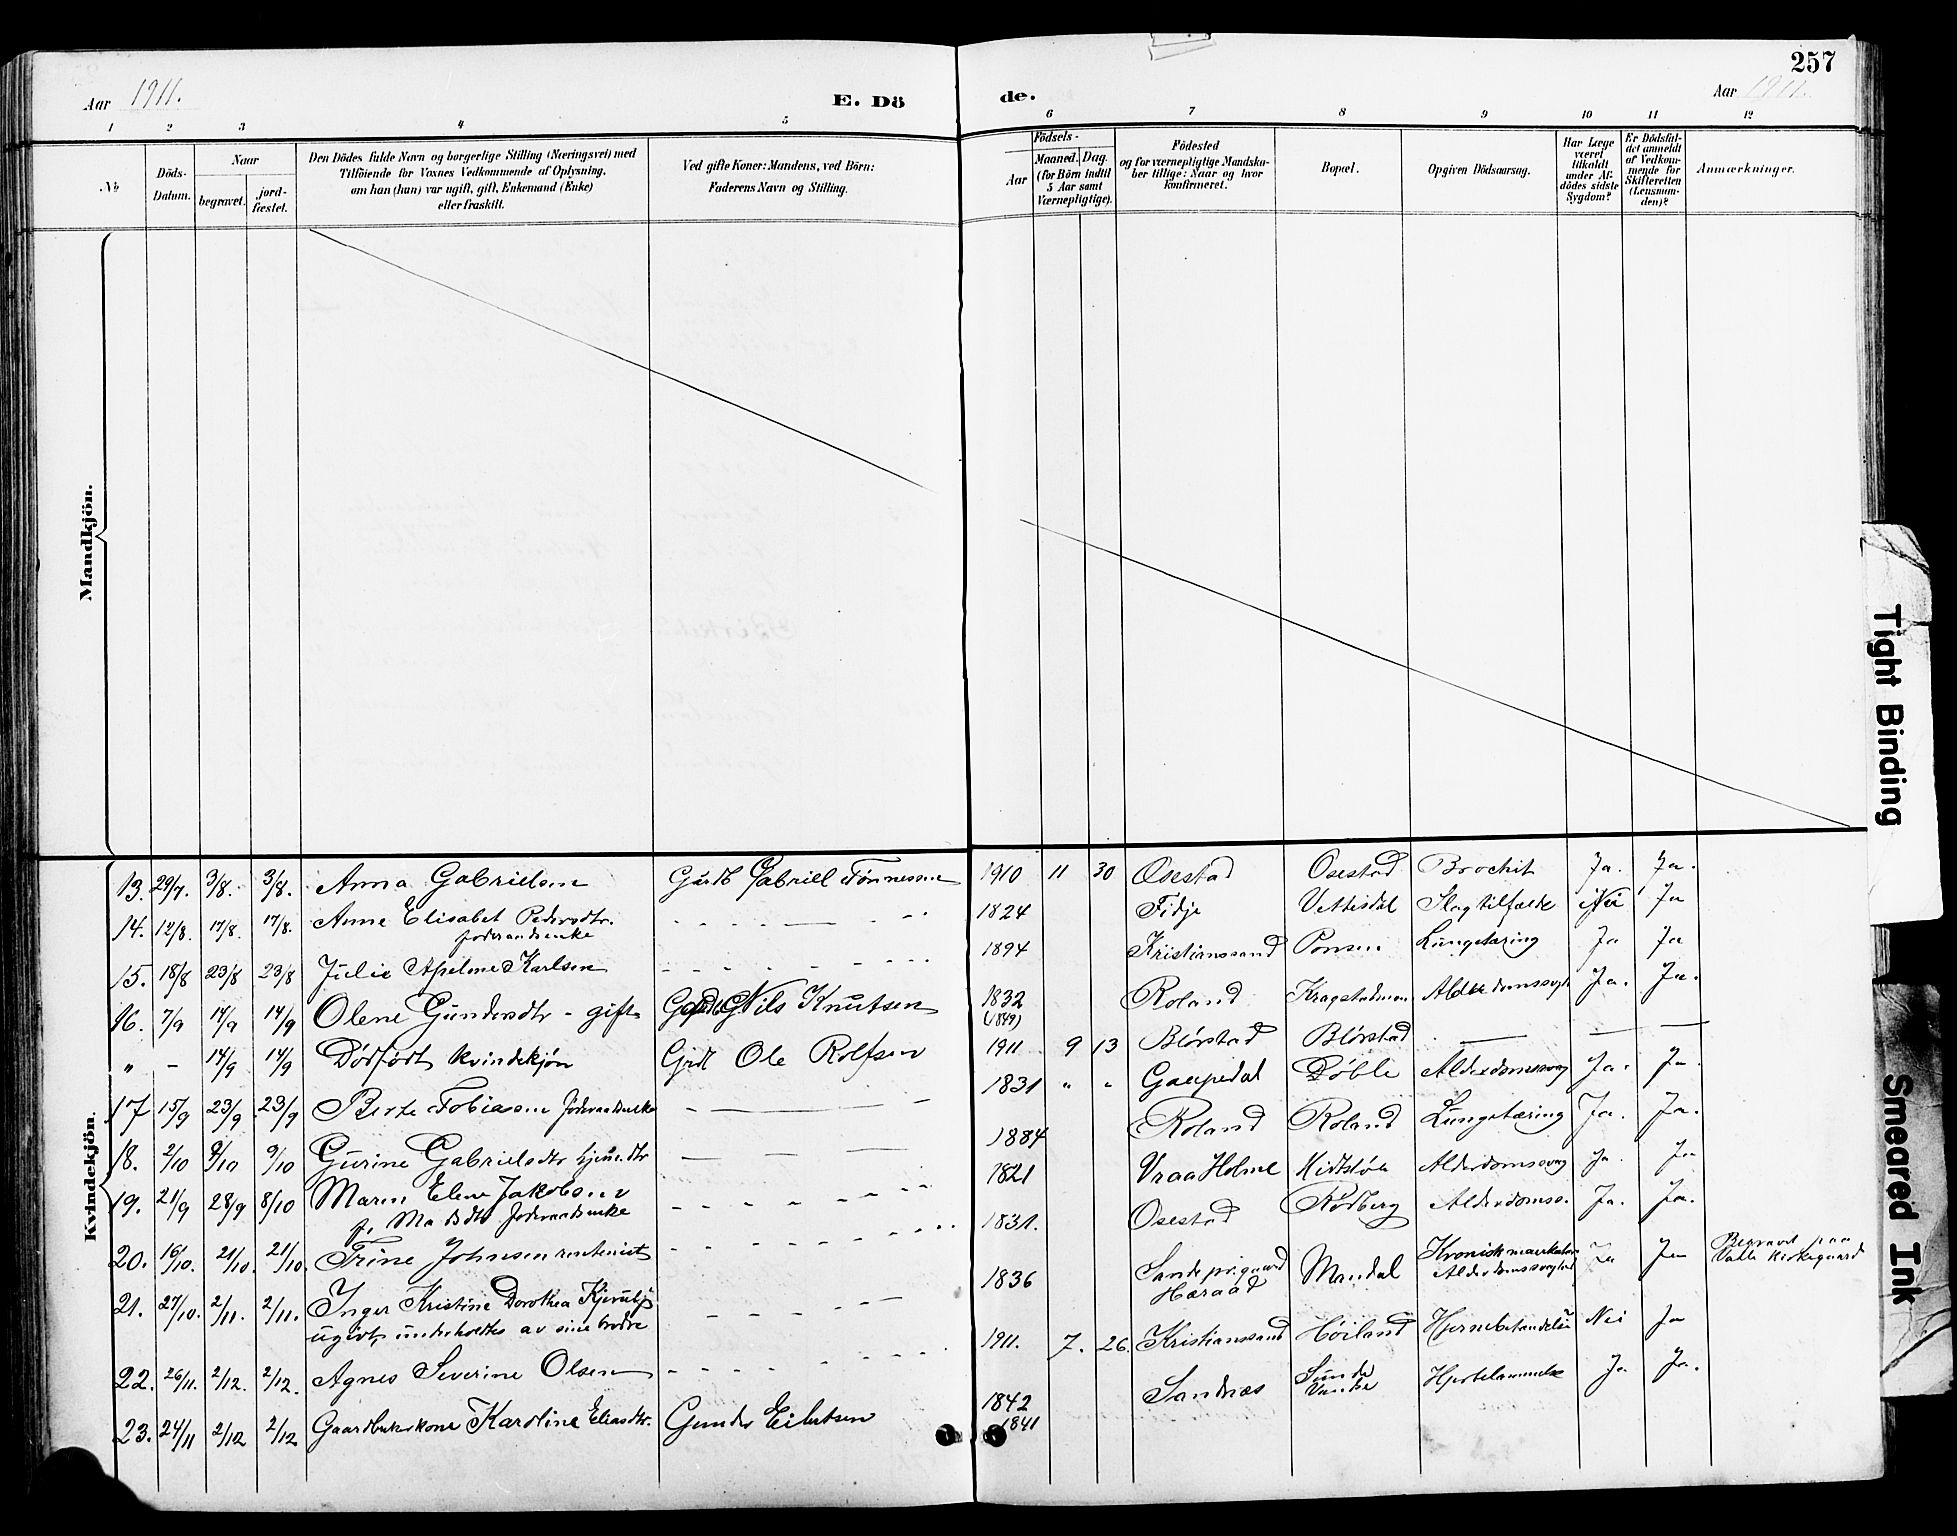 257
Aar 1911.
E. Dö
de.
Aar 1911.
1 2 3 4 5 6 7 8 9 10 11 12
No
Döds-Datum.
Naar
begravet.
jord-fæstet.
Den Dödes fulde Navn og borgerlige Stilling (Næringsvei) med
Tilföiende for Voxnes Vedkommende af Oplysning,
om han (hun) var ugift, gift, Enkemand (Enke)
eller fraskilt.
Ved gifte Koner: Mandens, ved Börn:
Faderens Navn og Stilling.
Födsels-
Aar
Maaned. Dag.
(for Börn indtil
5 Aar samt
Værnepligtige).
Födested
og for værnepligtige Mandska-
ber tillige: Naar og hvor
konfirmeret.
Bopæl.
Opgiven Dödsaarsag.
Har Læge
været
tilkaldt
under Af-
dödes sidste
Sygdom?
Er Dödsfal-
det anmeldt
af Vedkom-
mende for
Skifteretten
(Lensman-
den)?
Anmærkninger.
Mandkjön.
Kvindekjön.
13. 29/7. 3/8. 3/8. Anna Gabrielsen Gårdb Gabriel Tønnessen 1910 11 30 Osestad Osestad Brochit Ja. Ja.
14. 12/8. 17/8. 17/8. Anne Elisabet Pedersdtr. 1824 Tidje Vettisdal Slagtilfælde Nei Ja
foderaadsenke
15. 18/8 23/8 23/8 Julie Karlsen 1894 Kristianssand Lungetæring Ja Ja
16. 7/9 14/9 14/9 Olene Gundersdtr - gift Nils Knutsen 1832 Roland Alderdomssvgh Ja. Ja.
(1849)
" - 14/9 14/9 Dødfødt kvindekjøn Gjrdt Ole Rolfsen 1911 9 13 Blørstad Blørstad
17 15/9 23/9 23/9 Berte Tobiasen foderaadsenke 1831 " " Gaupedal Døble Alderdomssvag Ja. Ja.
18. 2/10 9/10 9/10 Gurine Gabrielsdtr 1884 Roland Roland Lungetæring Ja. Ja.
19. 21/9 28/9 8/10 Maren Elene Jakobsen 1821 Vraa Holme Midtbøe Alderdomssvag Ja Ja
foderaadsenke
20. 16/10. 21/10. 21/10. Trine Johnsen rentenist 1831. Osestad Rødberg Alderdomss. Ja. Ja.
21. 27/10. 2/11. 2/11. Inger Kristine Dorothea 1836 Sande prgaard Mandal Kronisk Ja Ja Begravet paa
Hæraad Alderdomssvaghed Valle Kirkegaard
ugivt underholdtes av sine brødre
22. 26/11. 2/12. 2/12. Agnes Severine Olsen 1911. 7. 26. Kristianssand Høiland Hjernebetændelse Nei Ja
23. 24/11 2/12 2/12 Gaardbrukerkone Karoline Eliasdtr. Gunder Eilertsen 1842 Sandnæs Sunde Hjertelammelse Ja Ja.
1841
Tight Binding
Smeared Ink